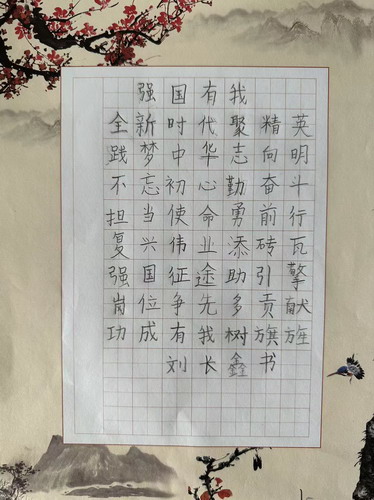 强国有我
全新时代聚精英
践梦中华志向明
不忘初心勤奋斗
担当使命勇前行
复兴伟业添砖瓦
强国征途助引擎
岗位争先多贡献
功成有我树旗旌
刘长鑫书